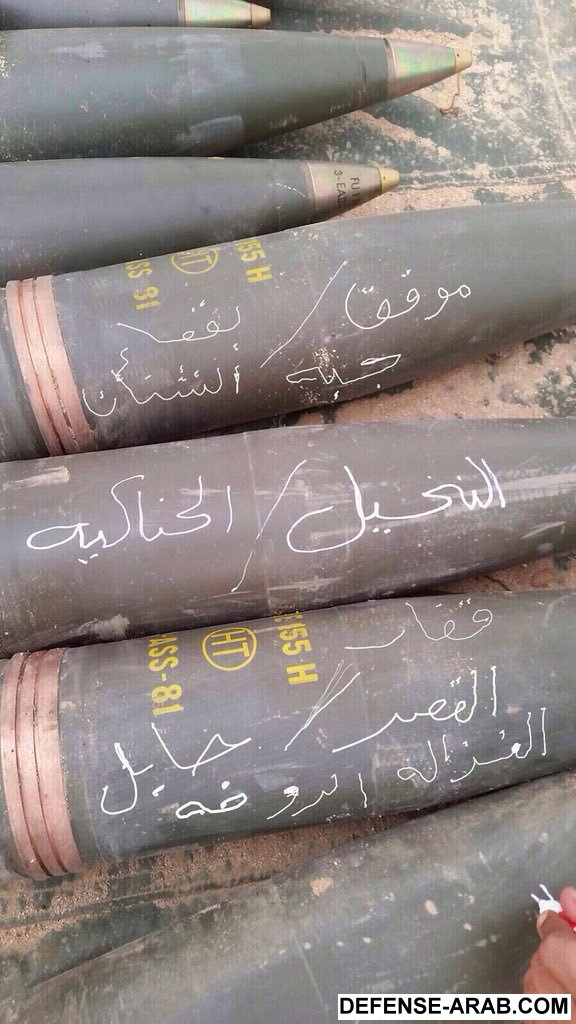 FU
3-EAD
155 H
HT
ASS 81
موقق / قفد
جبه / الشنان
النخيل / الحناكيه
155 H
HT
ASS-81
قفار
القصر / حايل
الغزاله الروضه
DEFENSE-ARAB.COM